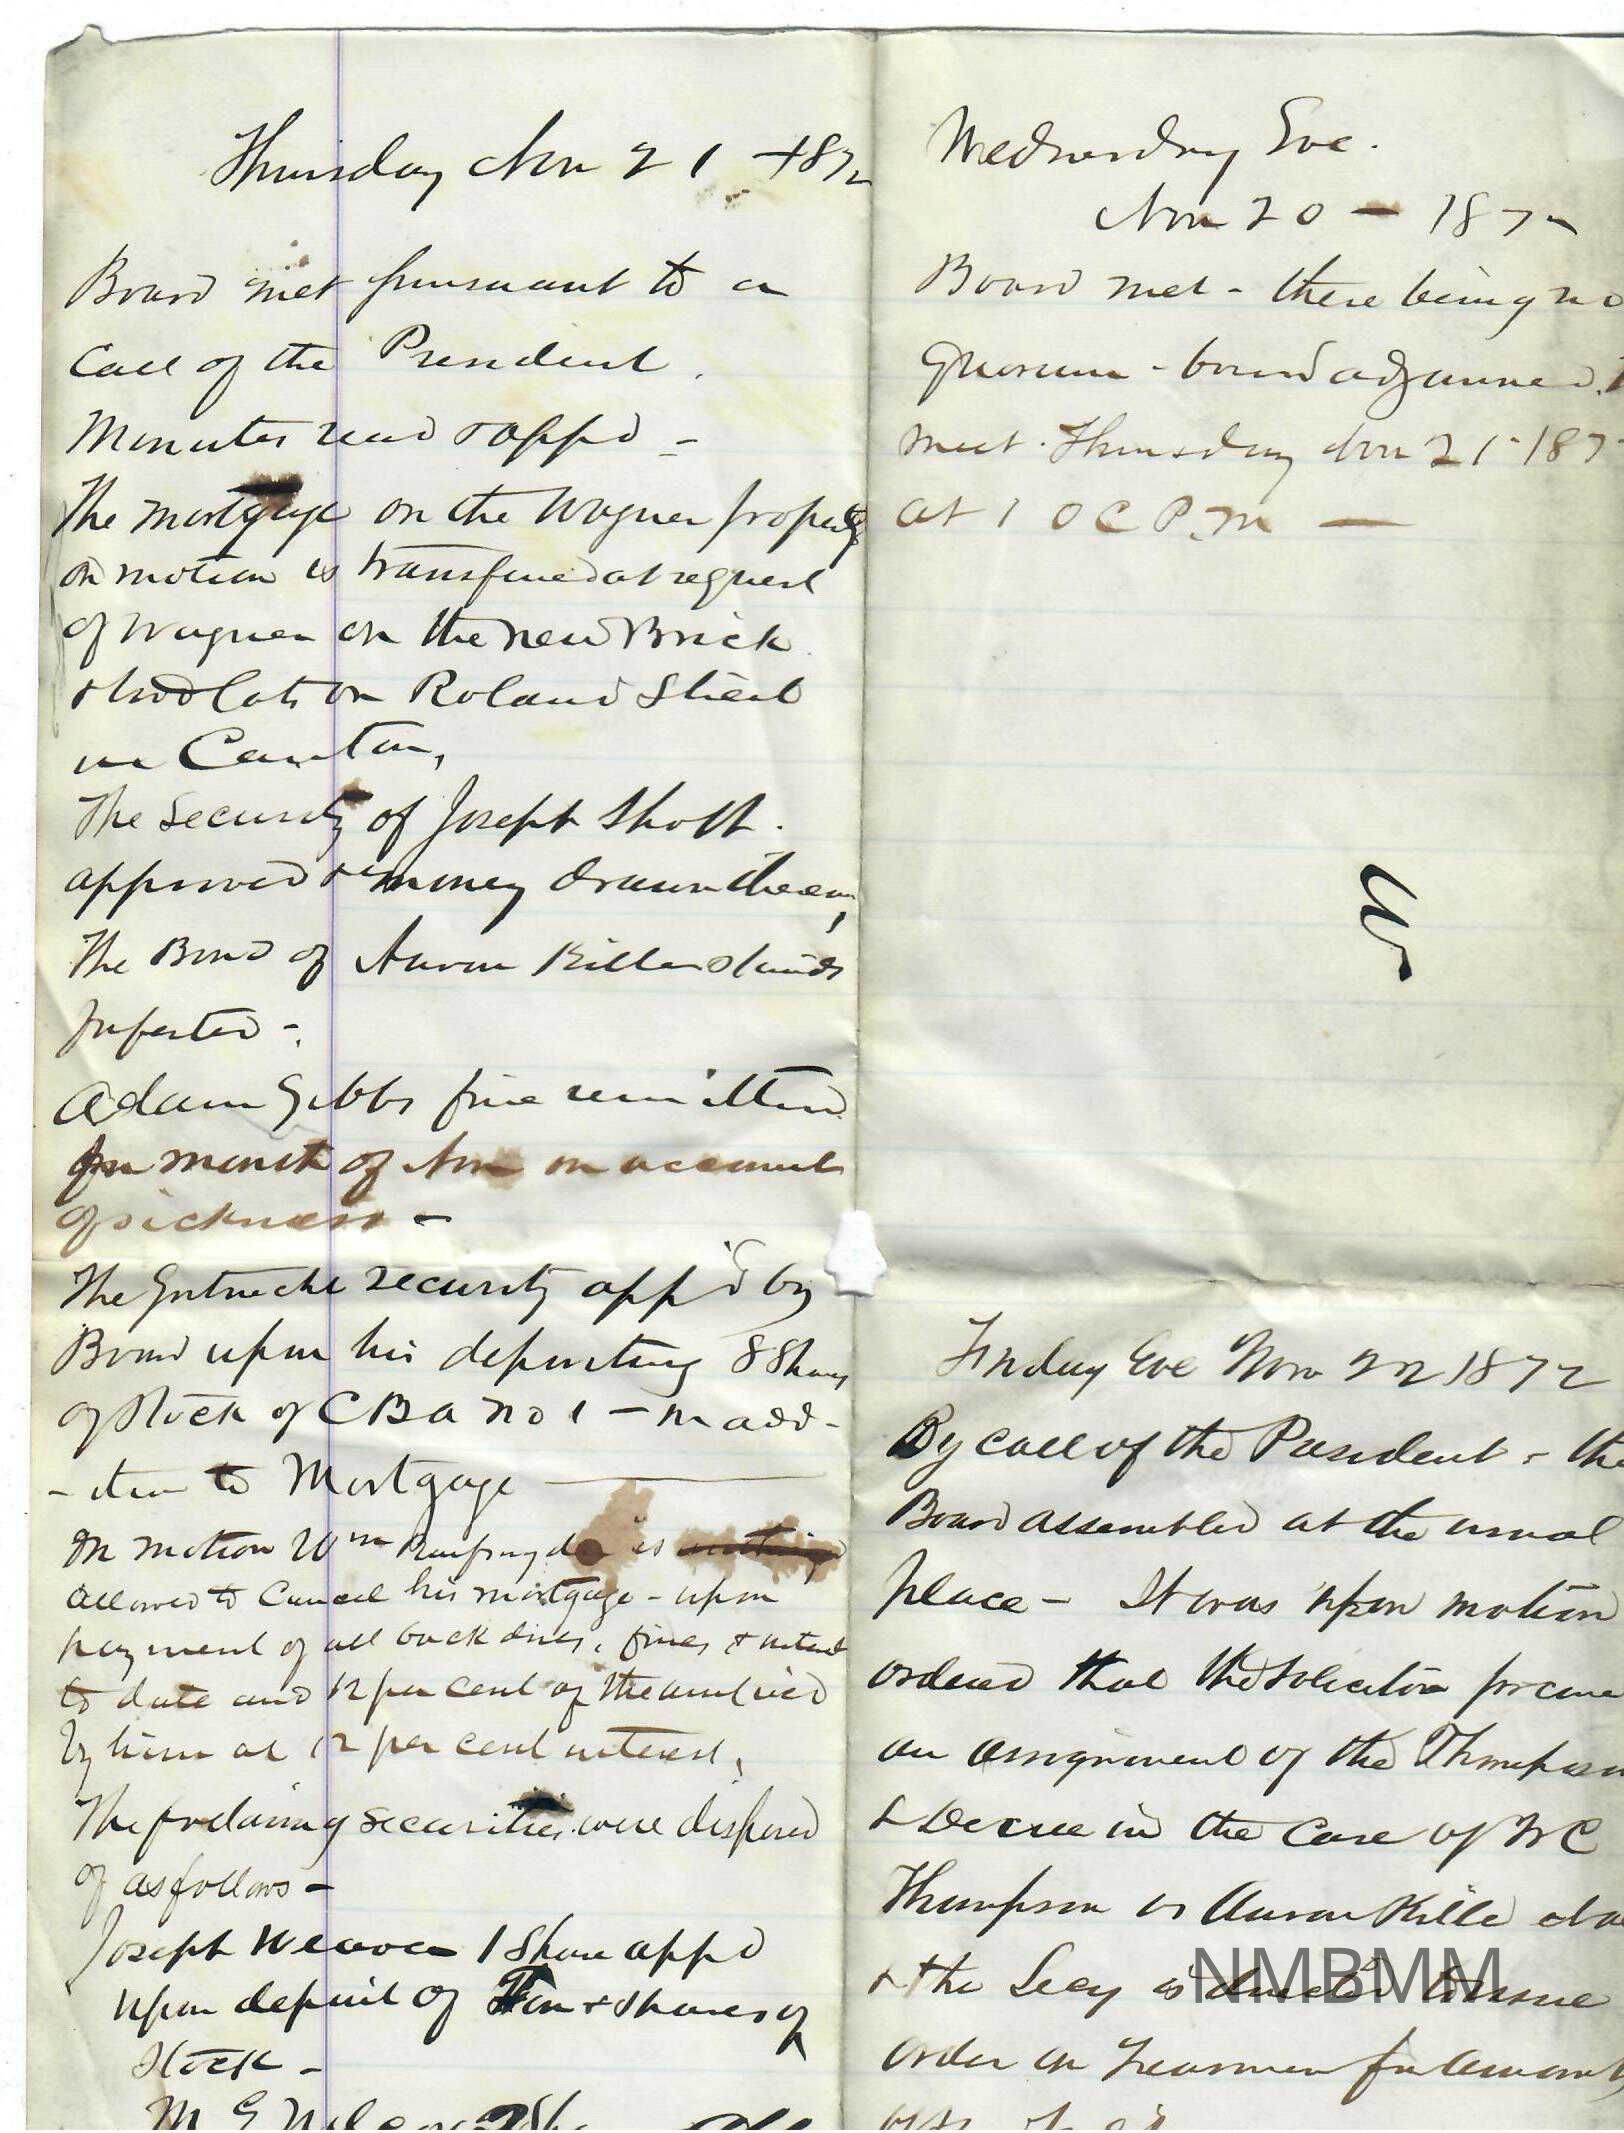 Thursday Nov 21 1872
Board met pursuant to a
Call of the President.
Minutes read & appd -
The mortgage on the Wagner property
on motion is transfered at request
of Wagner on the new Brick
& two lots on Roland Street
in Canton,
The Security of Joseph Shott.
approved & money drawn thereon,
The Bond of Aaron Kille
-
Adam Gibbs fine remitted
for month of Nov on account
of sickness -
The security app'd by
Board upon his depositing 8 Shares
of Stock of C B A No 1 - in add-
- ition to Mortgage
On motion Wm is
allowed to Cancel his mortgage - upon
payment of all back dues, fines & interest
to date and 12 per cent of the
by him at 12 per cent interest,
The following securities were disposed
of as follows -
Joseph Weaver 1 Share appd
upon deposit of shares of
Stock -
M G
Wednesday Eve.
Nov 20 - 1872
Board met - there being no
Quorum - board adjourned.
meet. Thursday Nov 21 187
at 1 OC P.M -
Friday Eve Nov 22 1872
By call of the President - the
Board assembled at the usual
place - It was upon motion
ordered that the solicitor procure
an assignment of the Thompson
& Decree in the Case of W C
Thompson vs Aaron Kille
& the Secy is directed to issue
order on for amount
NMBMM